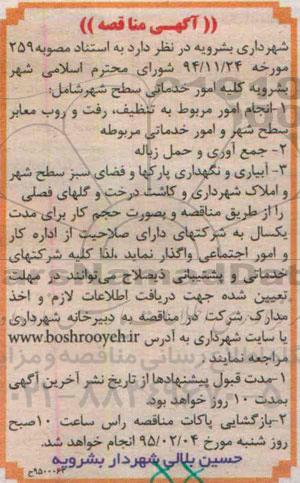 (( آگهـی منا قصه ))
شهرداری بشرویه در نظر دارد به استناد مصوبه ۲۵۹
مورخه ۹۴/۱۱/۲۴ شورای محترم اسلامی شهر
بشرویه کلیه امور خدماتی سطح شهرشامل:
۱-انجام امور مربوط به تنظیف، رفت و روب معابر
سطح شهر و امور خدماتی مربوطه
۲- جمع آوری و حمل زباله
۳- آبیاری و نگهداری پارکها و فضای سبز سطح شهر
و املاک شهرداری و کاشت درخت و گلهای فصلی
را از طریق مناقصه و بصورت حجم کار برای مدت
یکسال به شرکتهای دارای صلاحیت از اداره کار
و امور اجتماعی واگذار نماید ،لذا کلیه شرکتهای
خدماتی و پشتیبانی ذیصلاح می‌توانند در مهلت
تعیین شده جهت دریافت اطلاعات لازم و اخذ
مدارک شرکت در مناقصه به دبیرخانه شهرداری
یا سایت شهرداری به آدرس www.boshrooyeh.ir
مراجعه نمایند .
۱-مدت قبول پیشنهادها از تاریخ نشر آخرین آگهی
بمدت ۱۰ روز خواهد بود.
۲-بازگشایی پاکات مناقصه راس ساعت ۱۰صبح
روز شنبه مورخ ۹۵/۰۲/۰۴ انجام خواهد شد.
حسین بلالی شهردار بشرویه
۹۵۰۰۰۶۳ج